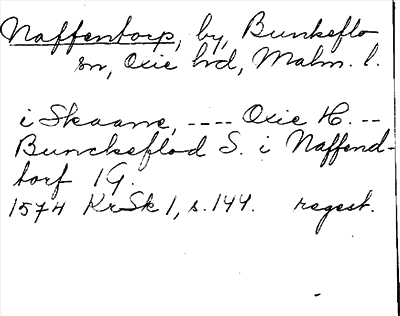 Naffentorp, by, Bunkeflo
sn, Oxie hd, Malm. l.
i Skaane, ---- Oxie H. --
Bunckeflod S. i Naffend-
torf 1 G.
1574 KrSk 1, s. 144. regest.